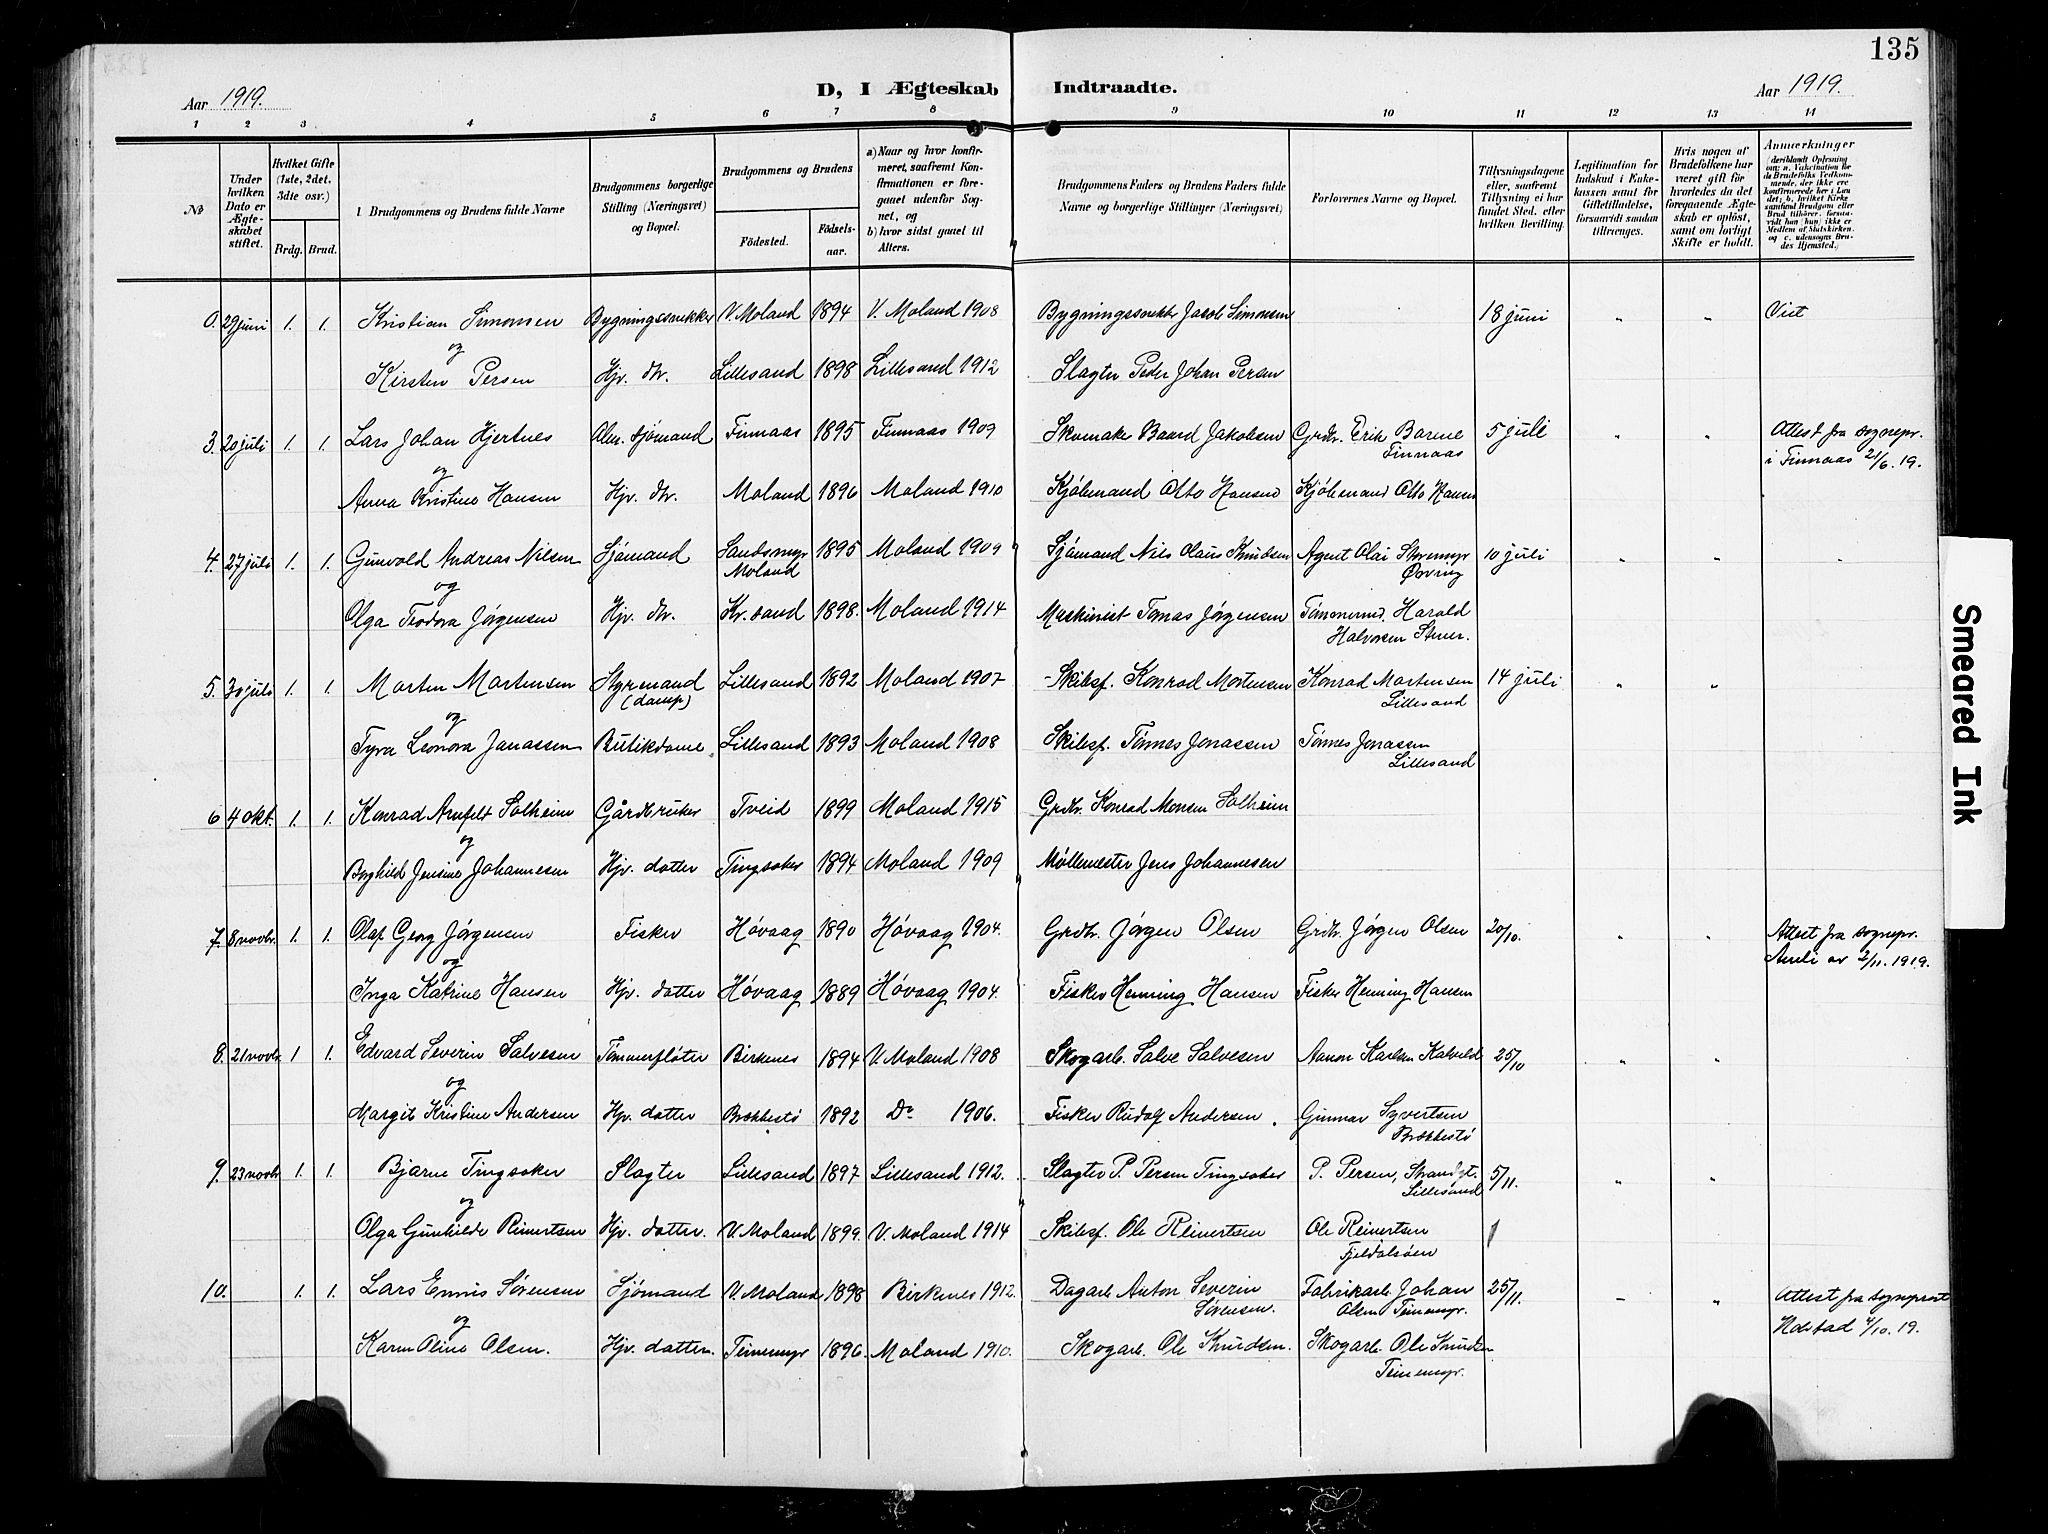 135
Aar 1919.
D, I Ægteskab Indtraadte.
Aar 1919.
1 2 3 4 5 6 7 8 9 10 11 12 13 14
No
Under hvilken Dato er Ægteskabet stiftet.
Hvilket Gifte (1ste, 2det, 3die osv.)
Brdg. Brud.
1. Brudgommens og Brudens fulde Navne
Brudgommens borgerlige Stilling (Næringsvei) og Bopæl.
Brudgommens og Brudens
Födested.
Födselsaar.
a) Naar og hvor konfirmeret, saafremt Konfirmationen er foregaaet udenfor Sognet, og
b) hvor sidst gaaet til Alters.
Brudgommens Faders og Brudens Faders fulde Navne og borgerlige Stillinger (Næringsvei)
Forlovernes Navne og Bopæl.
Tillysningsdagene eller, saafremt Tillysning ei har fundet Sted, efter hvilken Bevilling.
Legitimation for Indskud i Enkekassen samt for Giftetilladelse, forsaavidt saadan tiltrænges.
Hvis nogen af Brudefolkene har været gift för hvorledes da det foregaaende Ægteskab er oplöst, samt om lovligt Skifte er holdt.
Anmærkninger
(deriblandt Oplysning om: a. Vakcination for de Brudefolks Vedkommende, der ikke ere konfirmerede her i Landet; b. hvilket Kirkesamfund Brudgom eller Brud tilhörer, forsaavidt han (hun) ikke er Medlem af Statskirken, og c. udensogns Brudes Hjemsted.)
0. 29 juni 1. 1. Kristian Simonsen Bygningssnekker V. Moland 1894 V. Moland 1908 Bygningssnekk Jacob Simonsen 18 juni " " Viet
og
Kirsten Persen Hjv. dtr. Lillesand 1898 Lillesand 1912 Slagter Peder Johan Persen
3. 20 juli 1. 1. Lars Johan Hjertnes Alm. sjømand Finnaas 1895 Finnaas 1909 Skomaker Baard Jakobsen Grdbr. Erik Barme 5 juli " " Attest fra sognepr.
Finnaas i Finnaas 21/6. 19.
og
Anna Kristine Hansen Hjv. dtr. Moland 1896 Moland 1910 Kjøbmand Otto Hansen Kjøbmand Otto Hansen
4. 27 juli 1. 1. Gunvold Andreas Nilsen Sjømand Sandsmyr 1895 Moland 1909 Sjømand Nils Olaus Knudsen Agent Olai Storemyr 10 juli " " "
og Moland Øvring
Olga Teodora Jørgensen Hjv. dtr. Kr. sand 1898. Moland 1914 Maskinist Tomas Jørgensen Tømmermd. Harald
Halvorsen
5. 30 juli 1. 1. Morten Mortensen Styrmand Lillesand 1892 Moland 1907 Skibsf. Konrad Mortensen Konrad Mortensen 14 juli " "
(damp) Lillesand
og
Tyra Leonora Janassen Butikdame Lillesand 1893 Moland 1908 Skibsf. Tønnes Jonassen Tønnes Jonassen
Lillesand
6 4 okt. 1. 1. Konrad Arnfelt Solheim Gårdbruker Tveid 1899 Moland 1915 Grdbr. Konrad Monsen Solheim
og
Borghild Jensine Johannesen Hjv. datter Tingsaker 1894 Moland 1909 Møllemester Jens Johannesen
7. 8 novbr. 1. 1. Olaf Georg Jørgensen Fisker Høvaag 1890 Høvaag 1904. Grdbr. Jørgen Olsen Grdbr. Jørgen Olsen 20/10. " " Attest fra sognepr.
og av 2/11. 1919.
Inga Katrine Hansen Hjv. datter Høvaag 1889 Høvaag 1904. Fisker Henning Hansen Fisker Henning Hansen
8. 21 novbr. 1 1. Edvard Severin Salvesen Tømmerfløter Birkenes 1894 V. Moland 1908 Skogarb. Salve Salvesen Aanon Karlsen Kalveld 25/10 " "
og
Margit Kristine Andersen Hjv. datter Brækkestø 1892 Do 1906. Fisker Rudolf Andersen. Gunnar Syvertsen
Brækkestø
9. 23 novbr. 1. 1. Bjarne Tingsaker Slagter Lillesand 1897 Lillesand 1912. Slagter P. Persen Tingsaker P. Persen, Strandgt. 5/11. " "
og Lillesand
Olga Gunhilde Reinertsen Hjv. datter. V. Moland 1899. V. Moland 1914 Skibsf. Ole Reinertsen Ole Reinertsen
Fjeldalsöen
10. 1. 1. Lars Ennis Sørensen Sjømand V. Moland 1898 Birkenes 1912. Dagarb. Anton Severin Fabrikarb. Johan 25/11. - " Attest fra sogneprest
og Sørensen. Olsen Teinemyr. 4/10. 19.
Karen Oline Olsen. Hjv. datter. Teinemyr 1896. Moland 1910. Skogarb. Ole Knudsen. Skogarb. Ole Knudsen
Teinemyr.
Smeared Ink